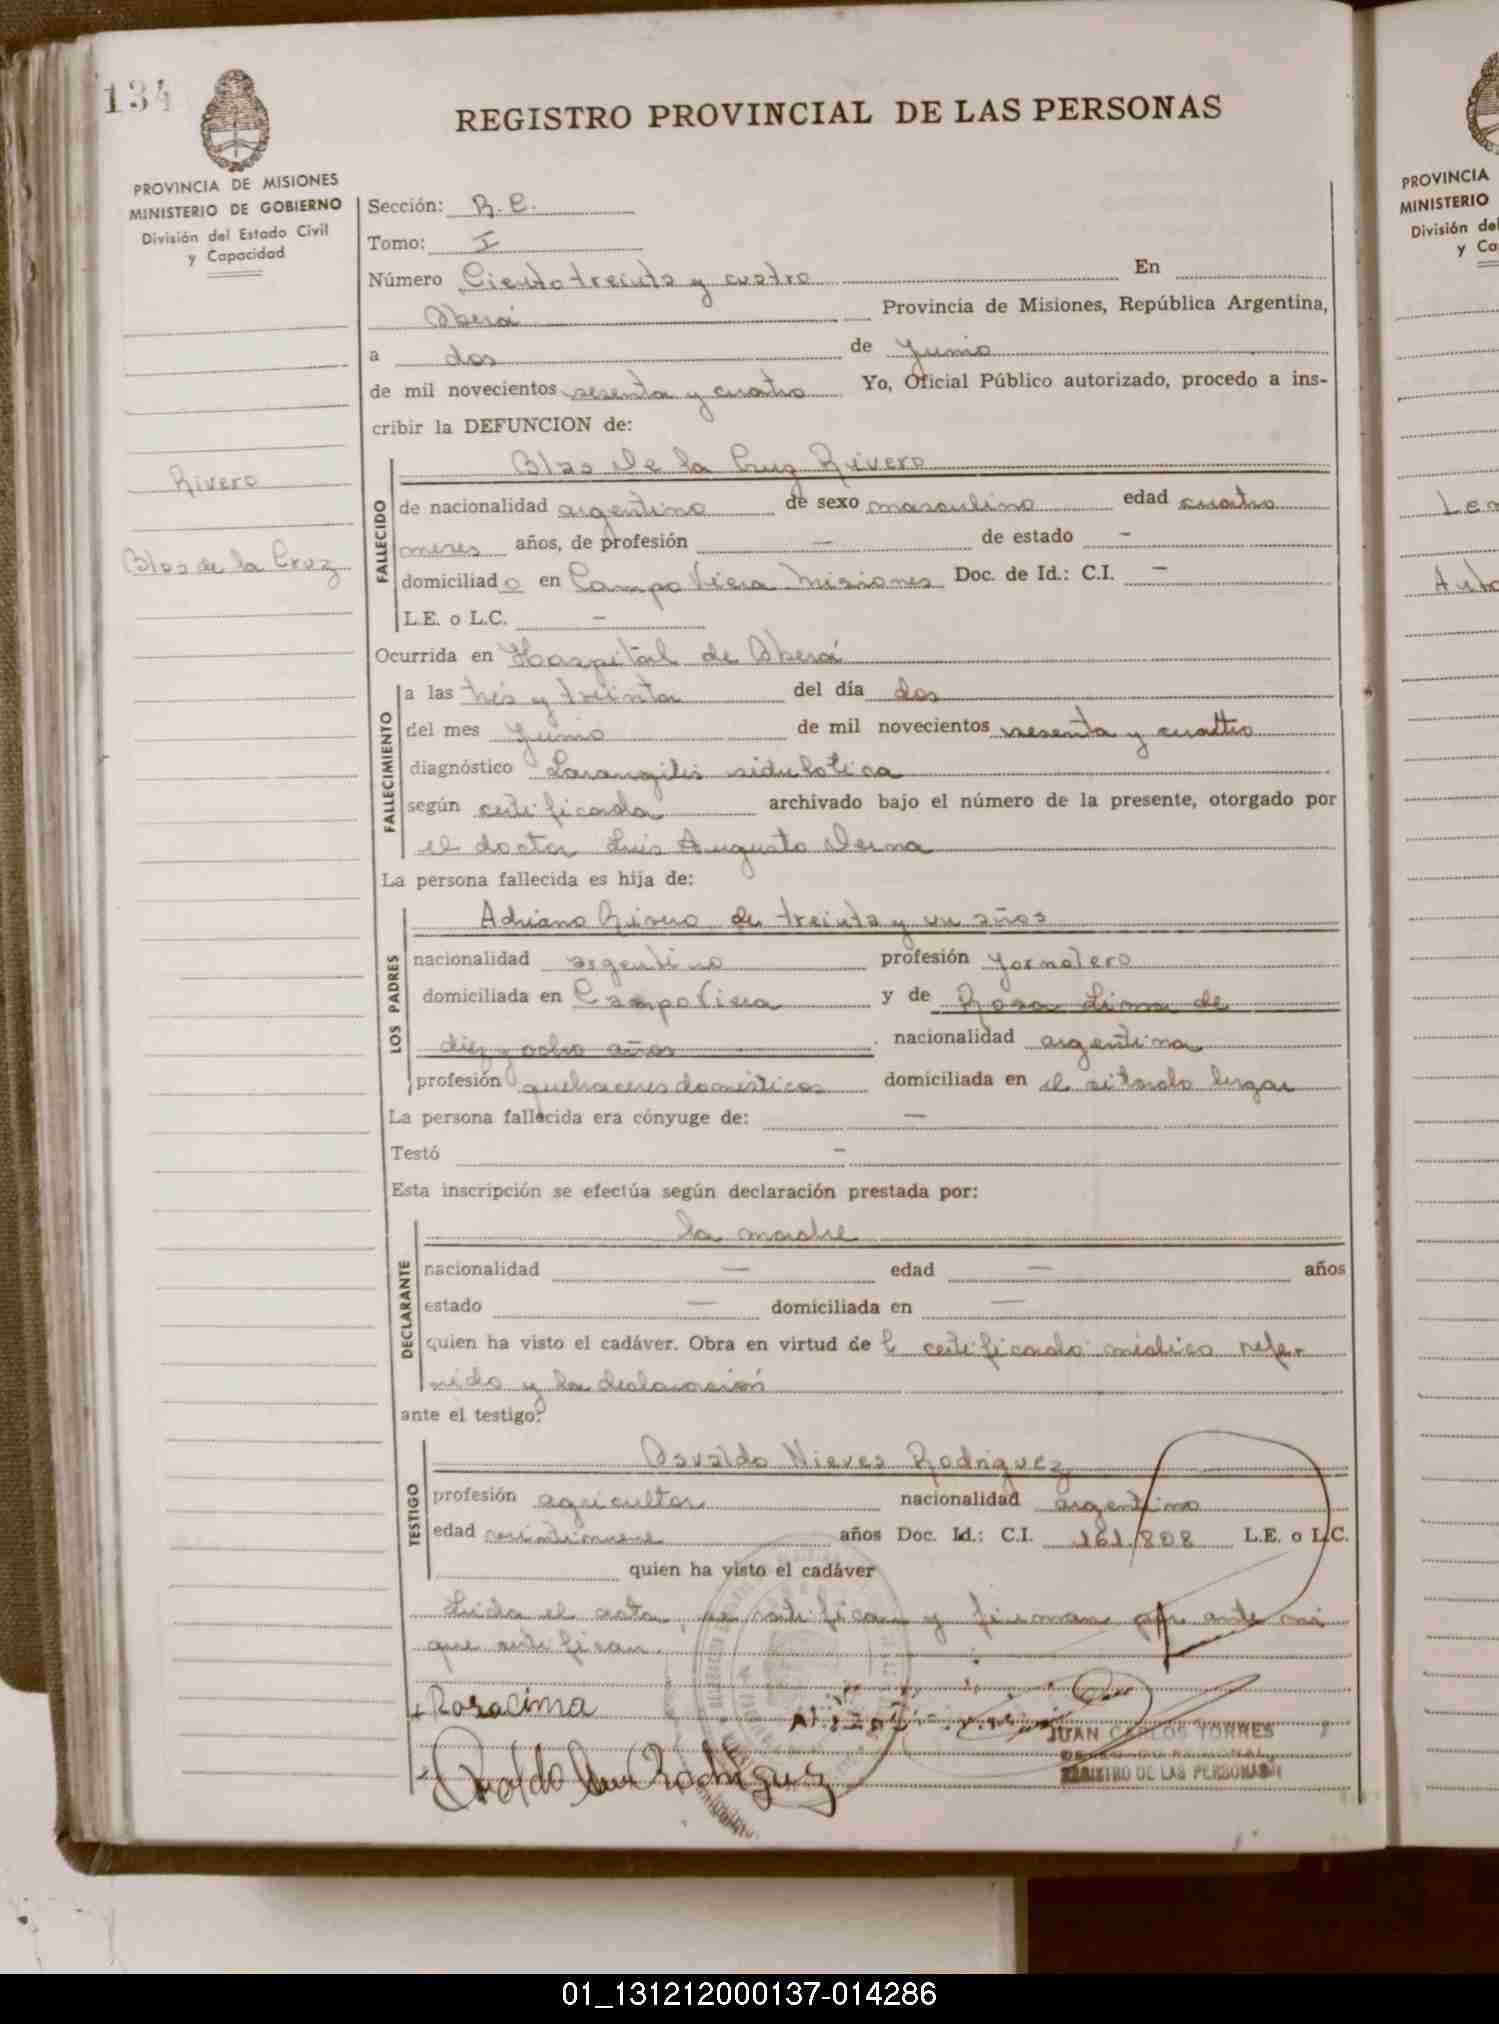 134
REGISTRO PROVINCIAL DE LAS PERSONAS
PROVINCIA DE MISIONES
MINISTERIO DE GOBIERNO
División del Estado Civil
y Capacidad
Rivero
Blas de la Cruz
Sección: R. C.
Tomo: I
Número Ciento treinta y cuatro En
Oberá Provincia de Misiones, República Argentina,
a dos de Junio
de mil novecientos sesenta y cuatro Yo, Oficial Público autorizado, procedo a ins-
cribir la DEFUNCION de:
FALLECIDO
Blas De la Cruz Rivero
de nacionalidad argentino de sexo masculino edad cuatro
meses años, de profesión — de estado —
domiciliado en Campo Viera Misiones Doc. de Id.: C.I. —
L.E. o L.C. —
Ocurrida en Hospital de Oberá
FALLECIMIENTO
a las tres y treinta del día dos
del mes Junio de mil novecientos sesenta y cuatro
diagnóstico
según certificado archivado bajo el número de la presente, otorgado por
el doctor Luis Augusto Derna
La persona fallecida es hija de:
LOS PADRES
Adriano Rivero de treinta y un años
nacionalidad argentino profesión Jornalero
domiciliada en Campo Viera y de Rosa Lima de
diez y ocho años nacionalidad argentina
profesión quehaceres domésticos domiciliada en el citado lugar
La persona fallecida era cónyuge de: —
Testó —
Esta inscripción se efectúa según declaración prestada por:
DECLARANTE
la madre
nacionalidad — edad — años
estado — domiciliada en —
quien ha visto el cadáver. Obra en virtud de l certificado médico refe-
rido y la declaración
ante el testigo:
TESTIGO
Osvaldo Nieves Rodriguez
profesión agricultor nacionalidad argentino
edad veintinueve años Doc. Id.: C.I. 161.808 L.E. o L.C.
quien ha visto el cadáver
Leida el acta, se ratifican y firman por ante mi
que certifican.
Rosa Cima
Rodriguez
JUAN CARLOS TORRES
REGISTRO DE LAS PERSONAS
PROVINCIA
MINISTERIO
División del
y Ca
01_131212000137-014286